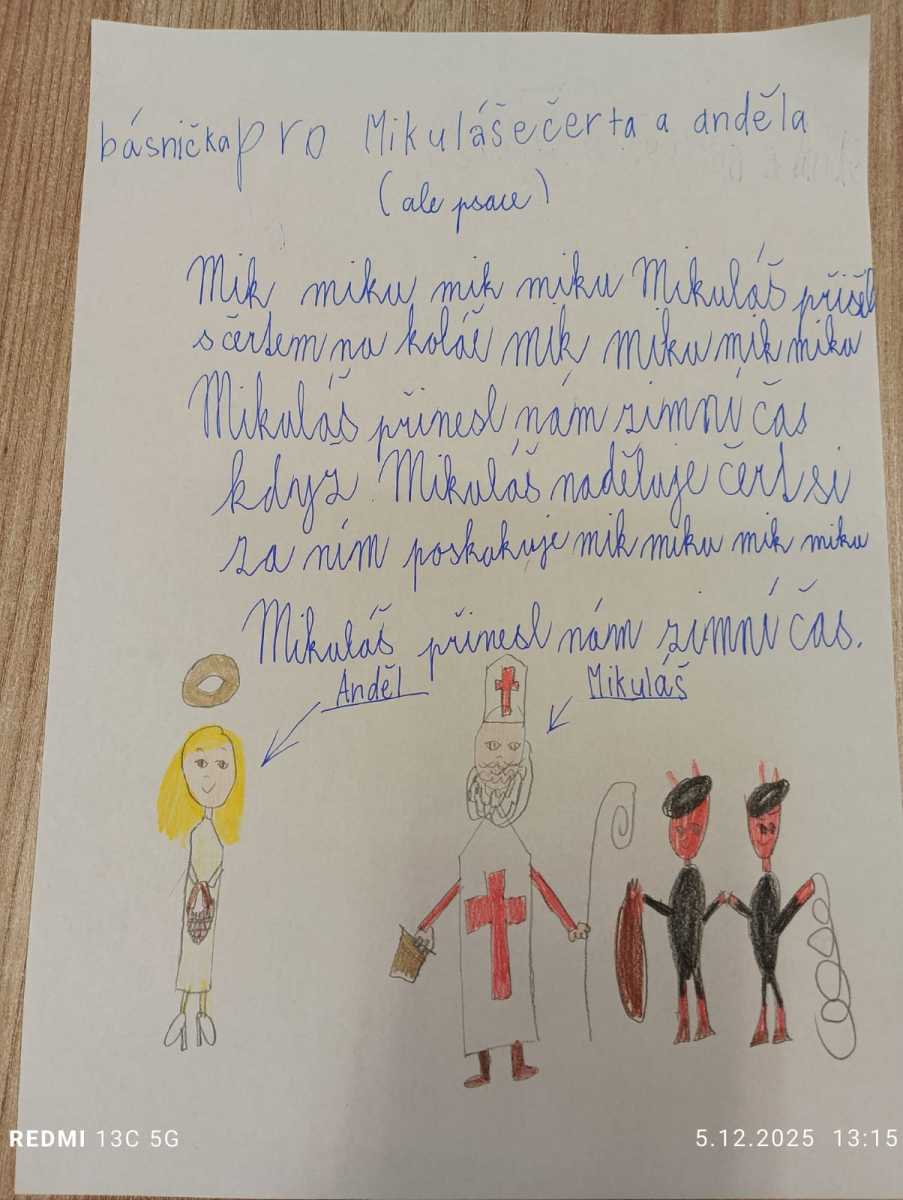 básnička pro Mikuláše čerta a anděla
(ale psace)
Mik miku mik miku Mikuláš přišel
s čertem na koláč mik miku mik miku
Mikuláš přinesl nám zimní čas
když Mikuláš naděluje čert si
za ním poskakuje mik miku mik miku
Mikuláš přinesl nám zimní čas.
Anděl
Mikuláš
REDMI 13C 5G
5.12.2025 13:15